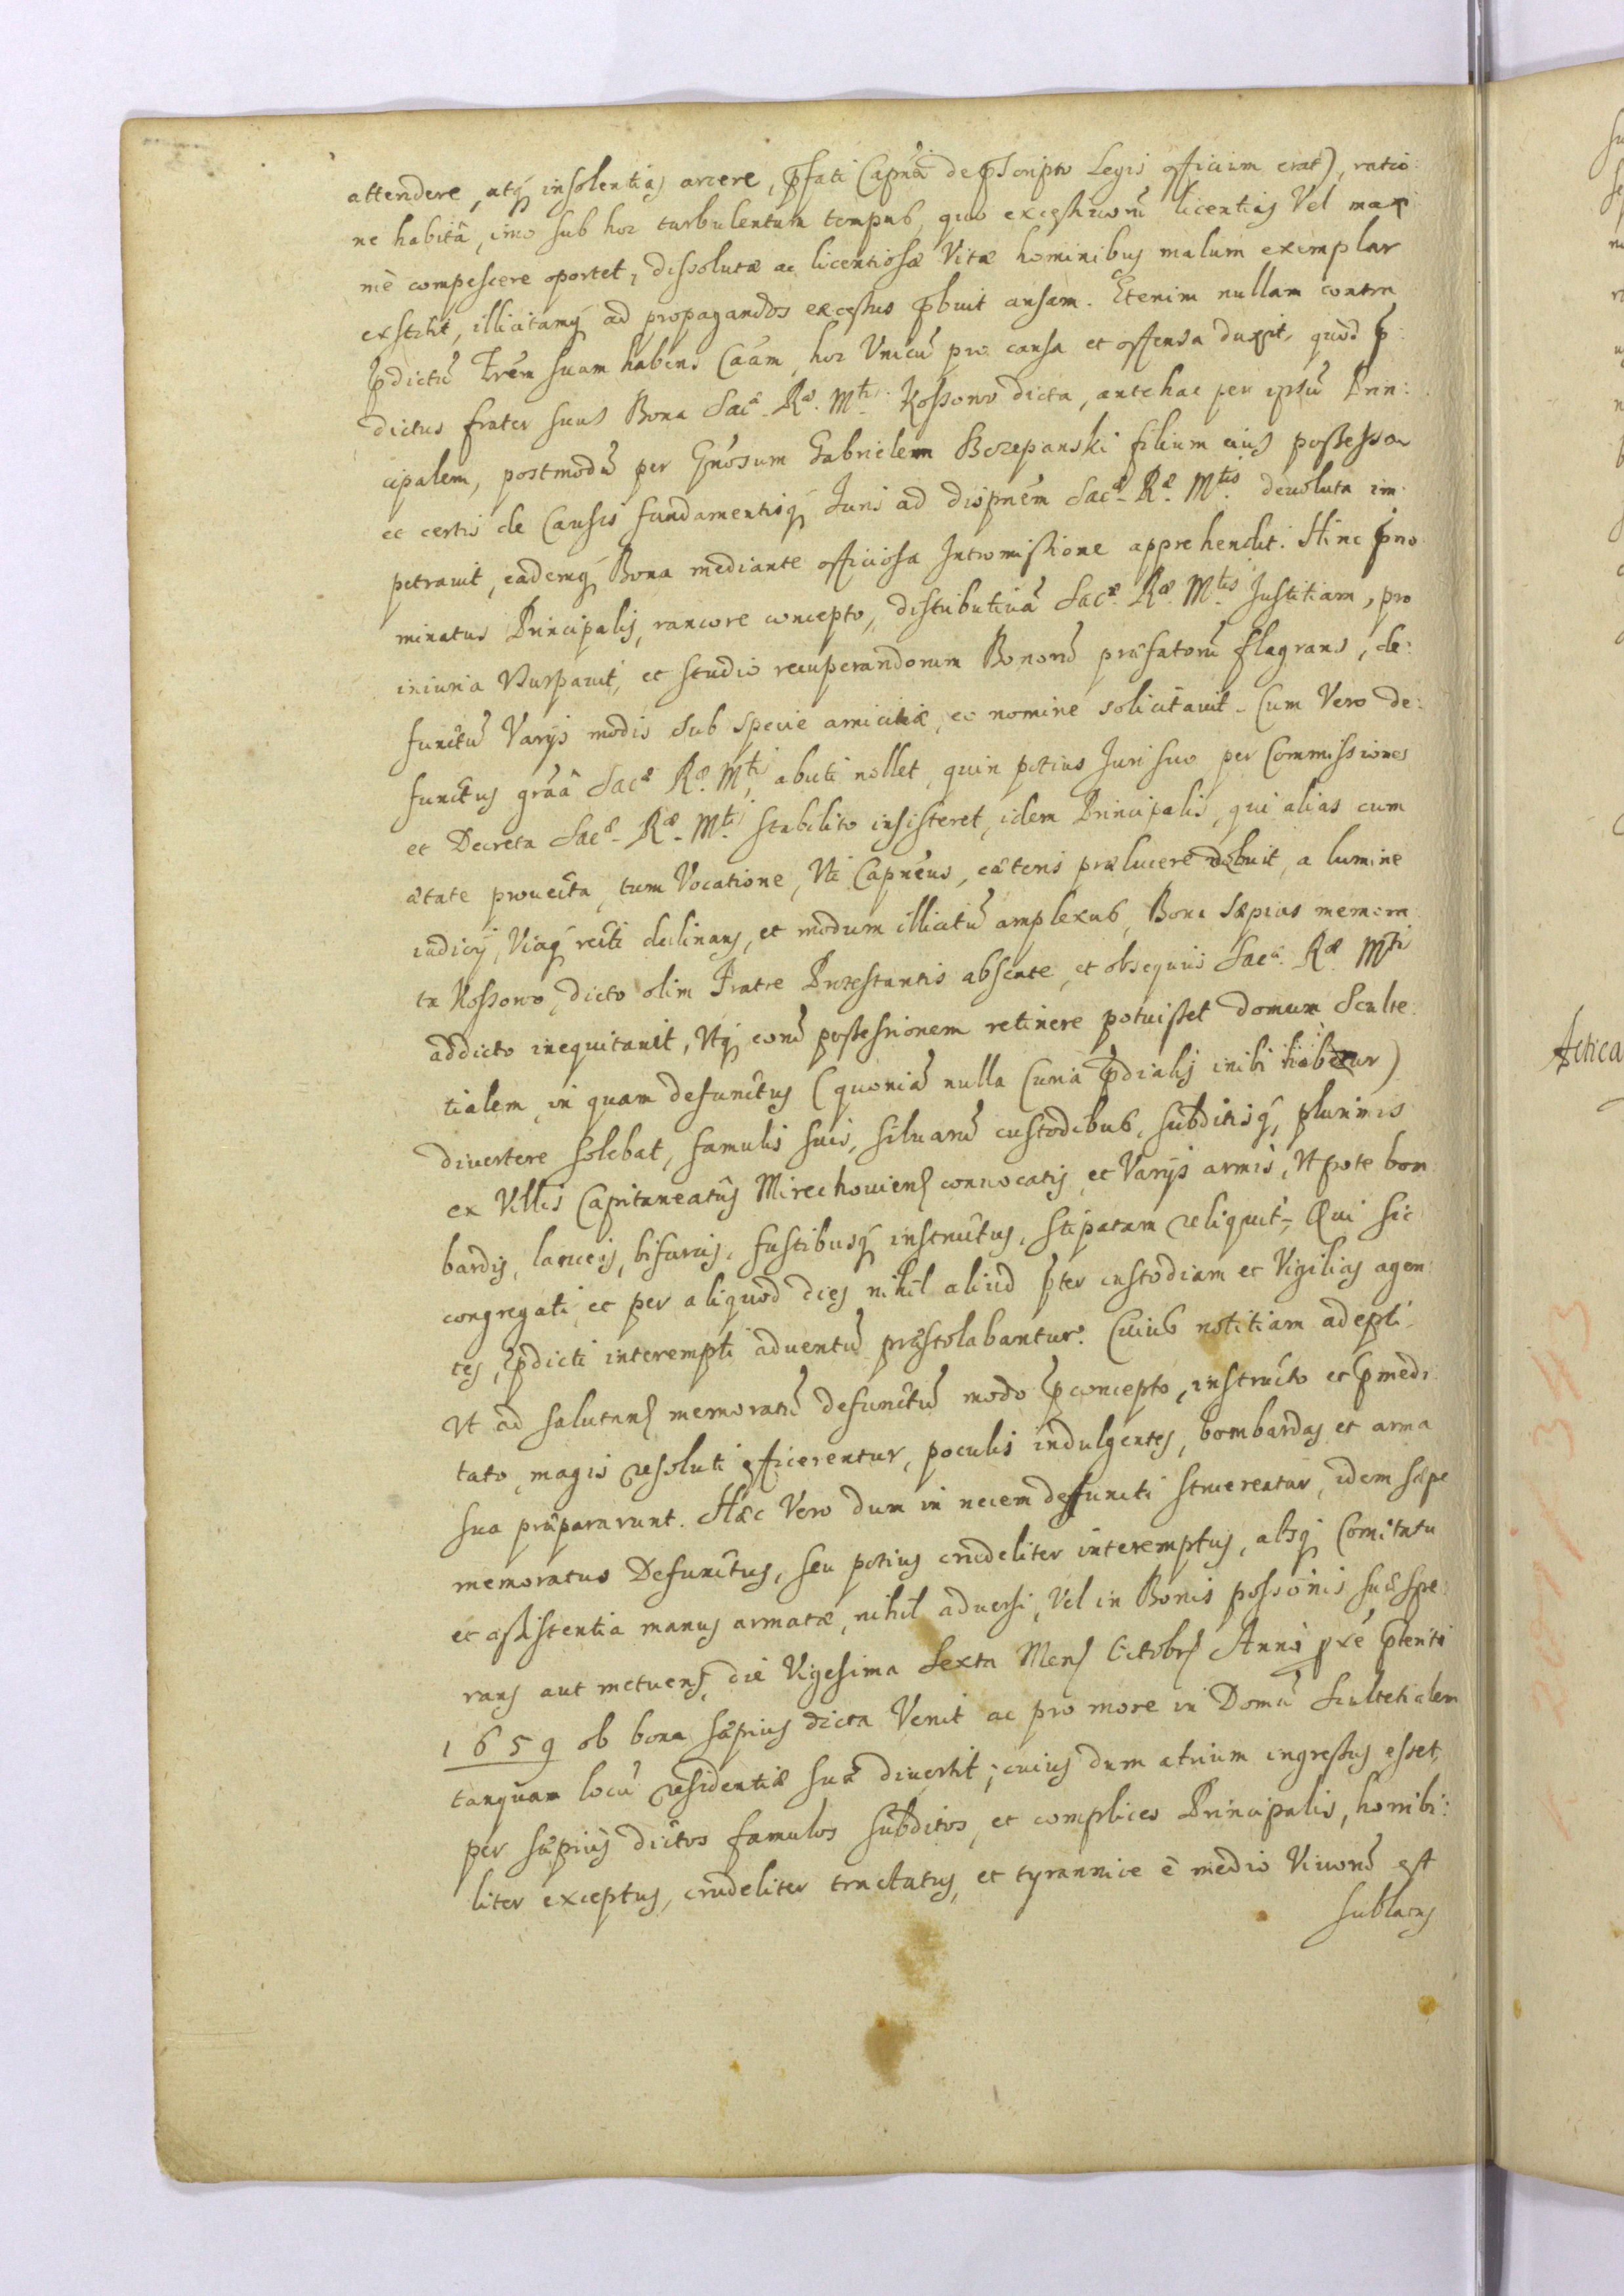 attendere, atq insolentias arcere, pfati Capnei de pscripto Legis officium erat), ratio:
ne habitâ, imo sub hoc turbulentum tempus, quo excessiuorũ licentias Vel maxi
mè compescere oportet, dissolutæ ac licentiosæ Vitæ hominibus malum exemplar
exstitit, illicitamq ad propagandos excessus pbuit ansam. Etenim nullam contra
pdictũ Frẽm suam habens Caãm, hoc Vnicũ pro causa et offensa duxit, quod p:
dictus frater suus Bona Sacæ. Ræ. Mtis. Kossowo dicta, antehac per ipsũ Prin:
cipalem, postmodũ per Gnosum Gabrielem Bczepanski filium eius possessa
ec certis de Causis fundamentisq Juris ad dispnẽm Sacæ. Ræ. Mtis. deuoluta im:
petrauit, eademq Bona mediante officiosa Intromissione apprehendit. Hinc pno
minatus Principalis, rancore concepto, distributiuã Sacæ. Ræ. Mtis. Justitiam, pro
iniuria Vsurpauit, et studio recuperandorum Bonorũ præfatorũ flagrans, de:
functũ Varijs modis sub specie amicitiæ, eo nomine solicitauit. Cum Vero de:
functus grãâ Sacæ Ræ. Mtis, abuti nollet, quin potius Juri suo per Commissiones
et Decreta Sacæ. Ræ. Mtis. stabilito insisteret, idem Principalis, qui alias cum
ætate prouecta, tum Vocatione, Vti Capnẽus, cæteris prælucere debuit, a lumine
iudicij, Viaq recti declinans, et modum illicitũ amplexus, Bona sæpius memora
ta Kossowo, dicto olim Fratre Protestantis absente, et obsequiis Sacæ. Ræ Mtis
addicto inequitauit, Vtq eorũ possessionem retinere potuisset domum Sculte
tialem, in quam defunctus (quoniã nulla Curia pdialis inibi habetur)
diuertere solebat, famulis suis, siluarũ custodibus, subditisq, plurimis
ex Villis Capitaneatus Mirechouiens conuocatis, et Varijs armis, Vtpote bom
bardis, lanceis, bifurcis, fustibusq instructus, stipatam reliquit. Qui sic
congregati, et per aliquod dies nihil aliud pter custodiam et Vigilias agen:
tes, pdicti interempti aduentũ præstolabantur. Cuius notitiam adepti
Vt ad salutans memoratũ defunctũ modo pconcepto, instructo et pmedi
tato, magis resoluti efficerentur, poculis indulgentes, bombardas et arma
sua præpararunt. Hæc Vero dum in necem defuncti struerentur, idem sæpe
memoratus Defunctus, seu potius crudeliter interemptus, absq Comitatu
et assistentia manus armatæ, nihil aduersi, Vel in Bonis possonis suæ spe:
rans aut metuens, die Vigesima Sexta Mens Octobrs Anni pxe pteriti
1659 ob bona sæpius dicta Venit ac pro more in Domũ Scultetialem
tanquam locũ residentiæ suæ diuertit; cuius dum atrium ingressus esset,
per sæpius dictos famulos subditos, et complices Principalis, horribi:
liter exceptus, crudeliter tractatus, et tyrannice è medio Viuorũ est
sublatus